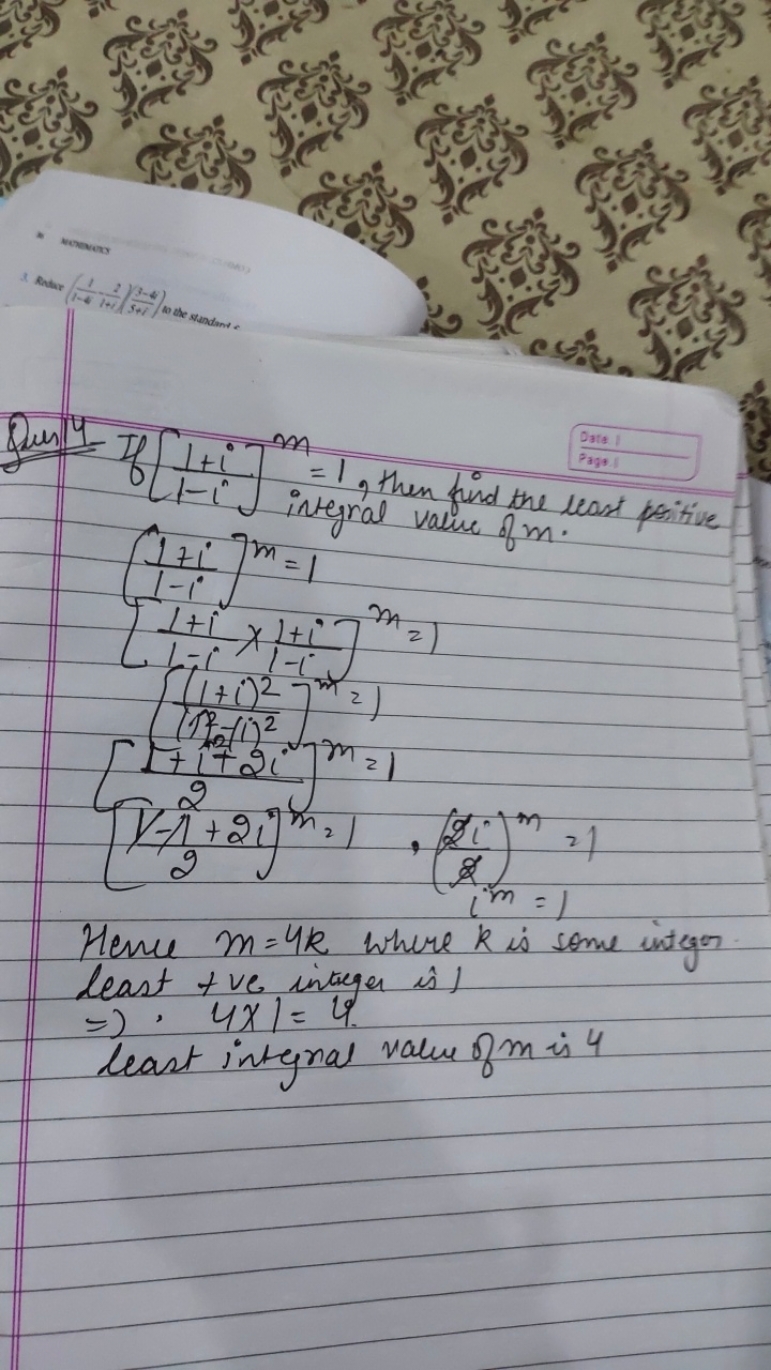 MATHEMATICS
3. Reduce (1/1-4i - 2/1+i)(3-4i/5+i) to the standard
Date |
Page |
Ques 14 If [1+i/1-i]^m = 1, then find the least positive
integral value of m.
[1+i/1-i]^m = 1
[1+i/1-i × 1+i/1-i]^m = 1
[(1+i)²/(1)²-(i)²]^m = 1
[1+i²+2i/2]^m = 1
[1-1+2i/2]^m = 1 , (2i/2)^m = 1
i^m = 1
Hence m = 4k where k is some integer
least +ve integer is 1
=) . 4×1 = 4.
least integral value of m is 4